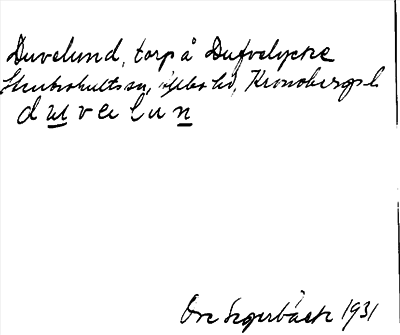 Duvelund, torp å Dufvelycke
Stenbrohults sn, Allbo hd, Kronobergs l
d u v e l u n
Ove Segerbäck 1931